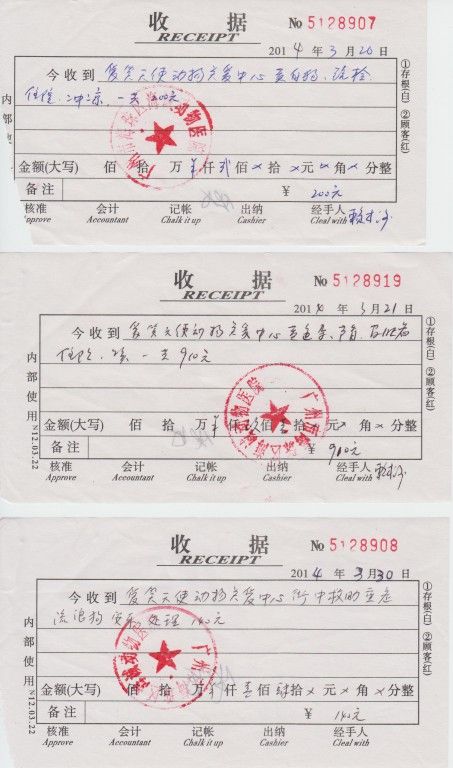 收 据
RECEIPT
No 5128907
2014 年 3 月 20 日
今收到 爱笑天使动物关爱中心
住院 一共 200元
金额(大写) 佰 拾 万 仟 贰 佰 × 拾 × 元 × 角 × 分整
备注 ¥ 200元
核准 会计 记帐 出纳 经手人
Approve Accountant Chalk it up Cashier Cleal with
①存根(白) ②顾客(红)
内部
广州市海珠区 动物医院
收 据
RECEIPT
No 5128919
2014 年 3 月 21 日
今收到 爱笑天使动物关爱中心
住院 一共 910元
金额(大写) 佰 拾 万 仟 佰 拾 元 × 角 × 分整
备注 ¥ 910元
核准 会计 记帐 出纳 经手人
Approve Accountant Chalk it up Cashier Cleal with
①存根(白) ②顾客(红)
内部使用 N12.03.22
广州市海珠区 动物医院
收 据
RECEIPT
No 5128908
2014 年 3 月 30 日
今收到 爱笑天使动物关爱中心 街中救助
流浪狗 安乐处理 140元
金额(大写) 佰 拾 万 仟 壹 佰 肆 拾 × 元 × 角 × 分整
备注 ¥ 140元
核准 会计 记帐 出纳 经手人
Approve Accountant Chalk it up Cashier Cleal with
①存根(白) ②顾客(红)
内部使用 N12.03.22
广州市海珠区 动物医院